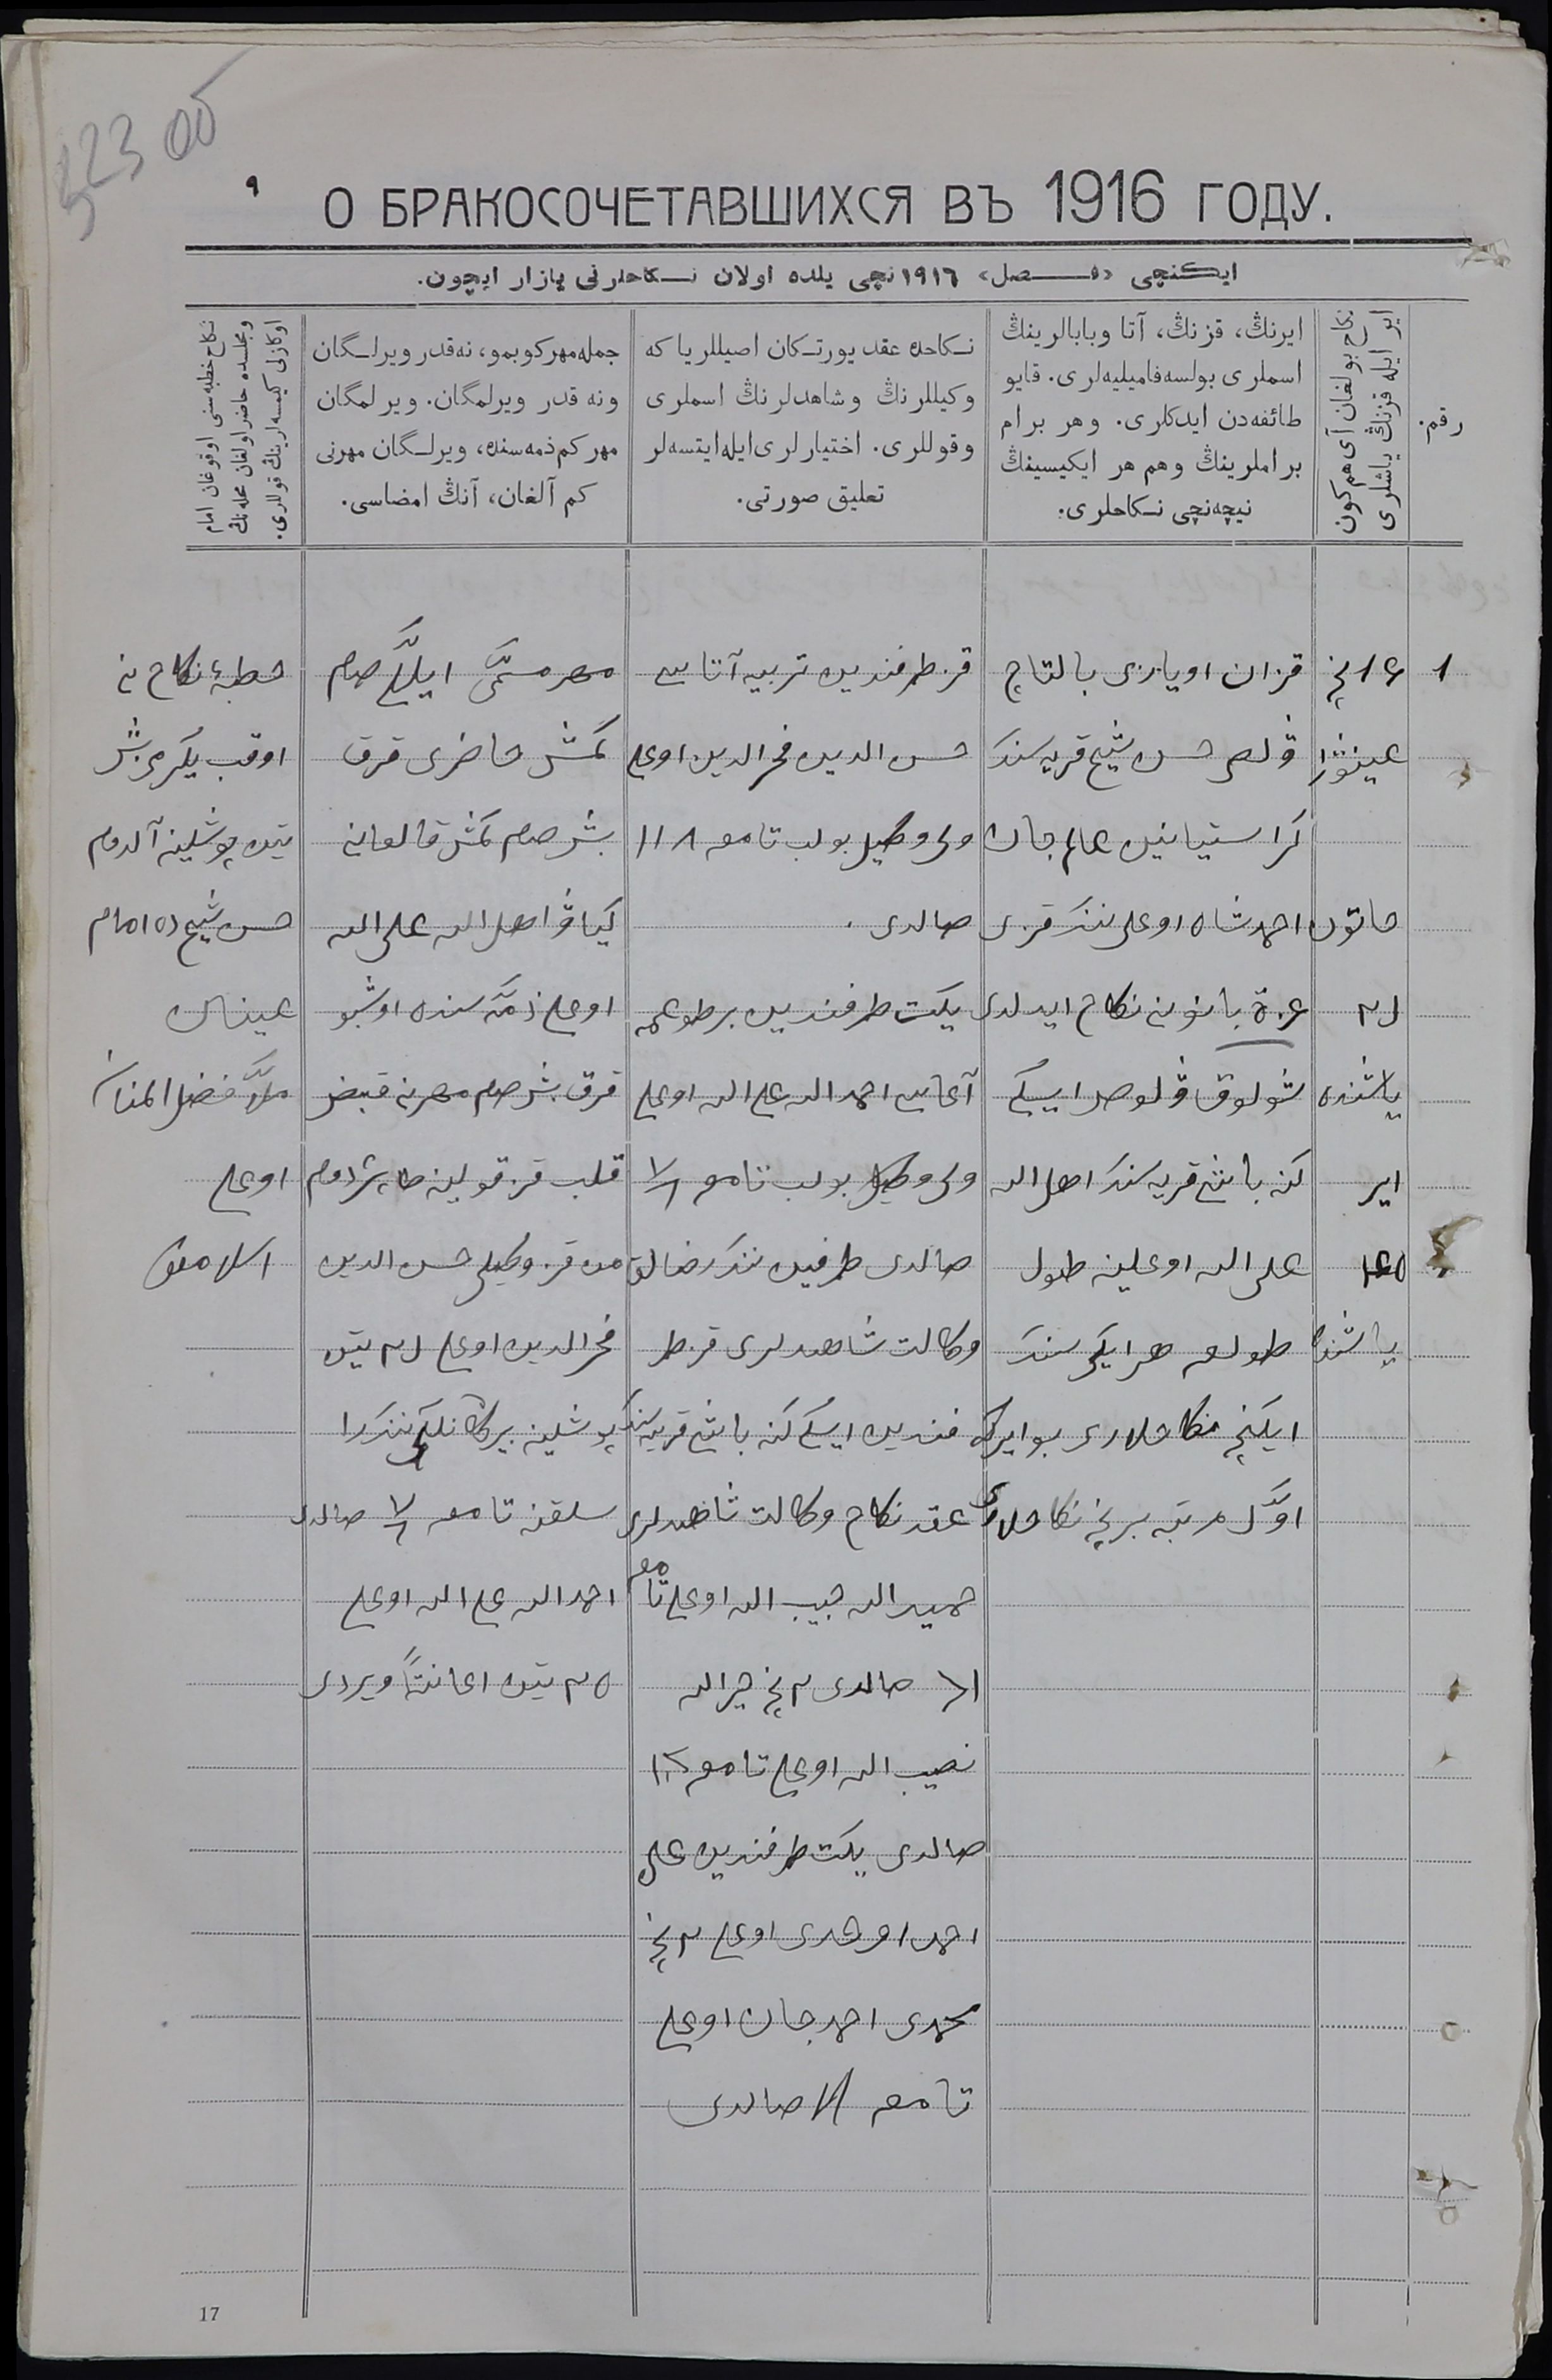 323 об
٩
О БРАКОСОЧЕТАВШИХСЯ ВЪ 1916 ГОДУ.
ایكنچی «فـصل» ١٩١٦نچی یلده اولان نـكاحلرنی یازار ایچون.
رقم.
نكاح بولغان آی هم كون
ایر ایله قزنڭ یاشلری
ایرنڭ، قزنڭ، آتا وبابالرینڭ
اسملری بولسه فامیلیه‌لری. قایو
طائفه‌دن ایدكلری. وهر برام
براملرینڭ وهم هر ایكیسینڭ
نیچه‌نچی نـكاحلری.
نـكاحده عقد یورتـكان اصیللریا كه
وكیللرنڭ وشاهدلرنڭ اسملری
وقوللری. اختیارلری ایله ایتسه‌لر
تعلیق صورتی.
جمله مهر كوبمو، نه‌قدر ویرلـگان
ونه قدر ویرلمگان. ویرلمگان
مهر كم ذمه‌سنده، ویرلـگان مهرنی
كم آلغان، آنڭ امضاسی.
نكاح خطبه‌سنی اوقوغان امام
ومجلسده حاضر اولغان محله‌نڭ
اوكازلی كیسه‌لرینڭ قوللری.
١
غینوار
خاتون
یاشنده
ایر
یاشنده
قزان اویازی بالتاچ
ڤلص حسن شیخ قریه سندن
كراستیانین عالم جان
احمد شاه اوغلی ننڭ قزی
عزة بانونی نكاح ایدلدی
شولوق ڤلوص ایسكی
كنه باش قریه سندن اهل الله
علی الله اوغلینه طول
طوله هر ایكی سندن
ایكنچی نكاحلاری بو ایرگه
اوّل مرتبه برنچی نكاحلاری
قز طرفندین تربیه آتاسی
حسن الدین فخرالدین اوغلی
ولی وكیل بولب تامغه
صالدی.
یكت طرفندین برطوغمه
آغاسی احمدالله علی الله اوغلی
ولی وكیل بولب تامغه
صالدی طرفین ننڭ رضالق
وكالت شاهدلری قز طر
فندین ایسكی كنه باش قریه سندن
عقد نكاح وكالت شاهدلری
حمیدالله حبیب الله اوغلی تامغه
صالدی ٢ نچی خیرالله
نصیب الله اوغلی تامغه
صالدی یكت طرفندین علی
احمد اوغلی ٢ نچی
محمدی احمدجان اوغلی
تامغه صالدی
مهر مسمّی ایللی صوم
كمش حاضری قرق
بش صوم كمش قالغانی
كیاڤ اهل الله علی الله
اوغلی ذمّه سنده اوشبو
قرق بش صوم مهرنی قبض
قلب قز قولینه طاپشردم
من قز وكیلی حسن الدین
فخرالدین اوغلی
سلقنه تامغه صالدی
احمدالله علی الله اوغلی
تین اعانتاً ویردی
خطبۀ نكاح نی
اوقب یكرمی بش
تین پوشلینه آلدوم
حسن شیخ ده امام
عینان
ملّا فضل المنان
اوغلی
17